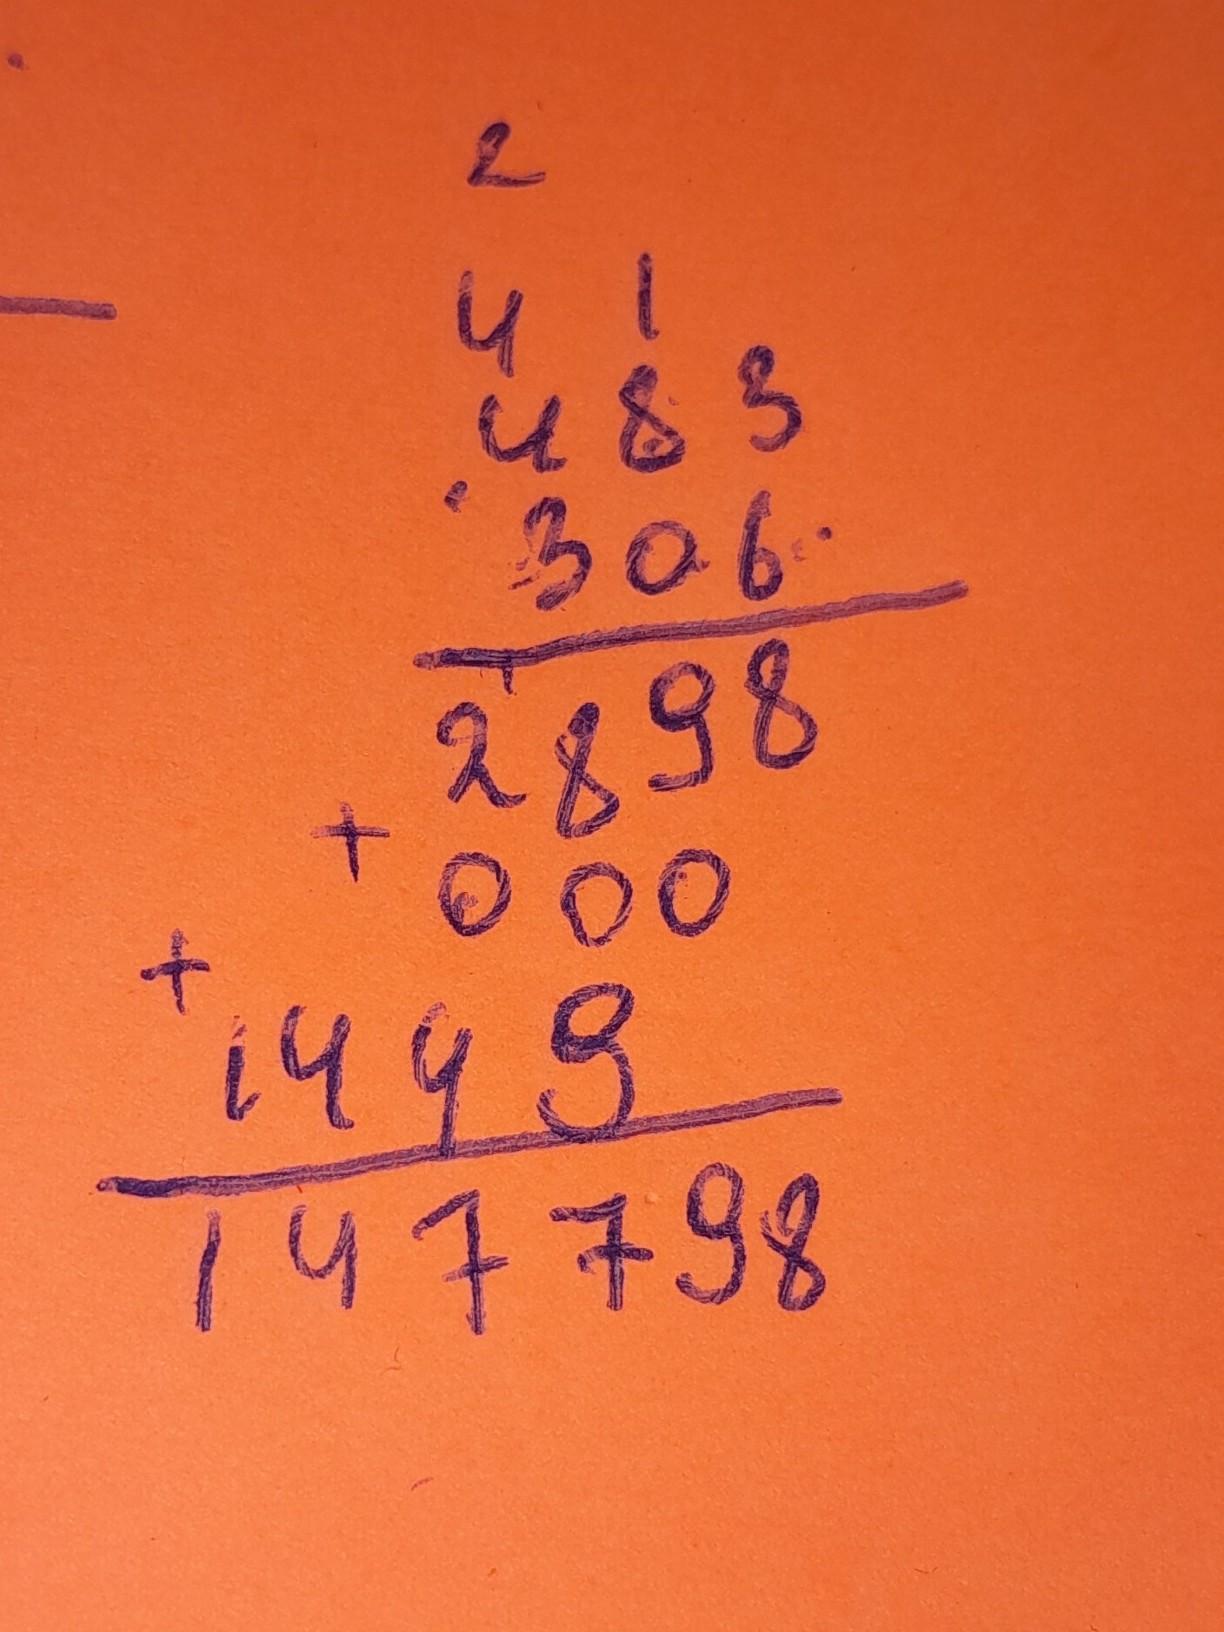 2
4 1
4 8 3
3 0 6
2 8 9 8
+ 0 0 0
+ 1 4 4 9
1 4 7 7 9 8